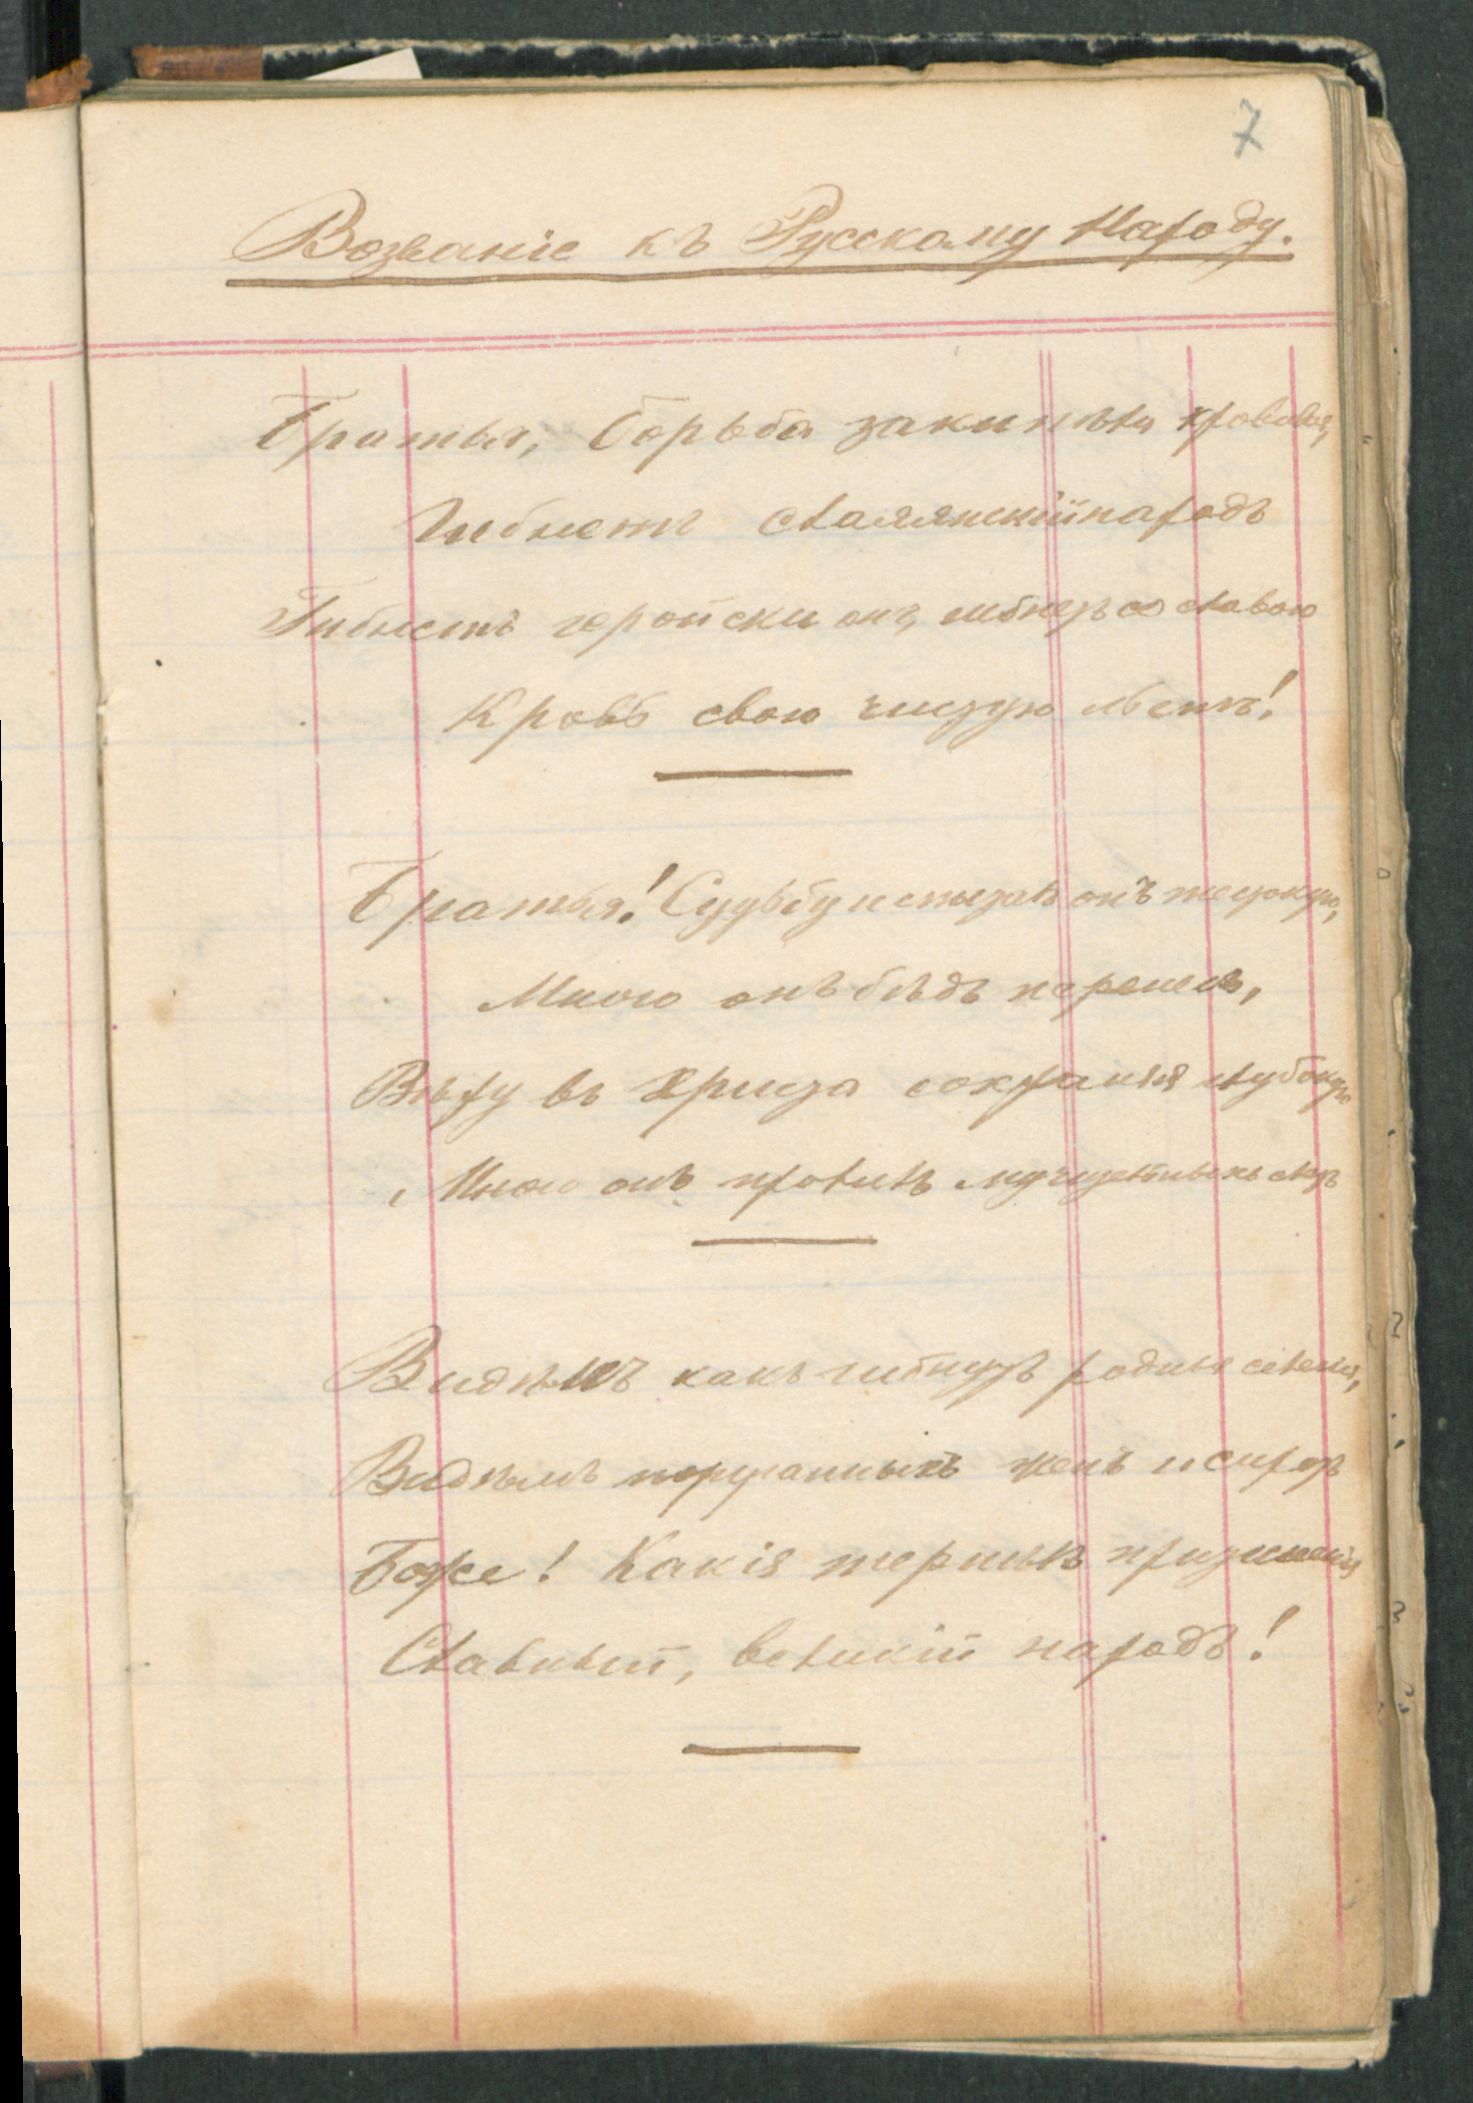 7
Воззваніе къ Русскому Народу.
Братья, борьба закипѣла кровавая,
Гибнетъ славянскій народъ
Гибнетъ геройски онъ, гибнетъ со славою
Кровь свою чистую льетъ!
Братья! Судьбу испыталъ онъ жестокую,
Много онъ бѣдъ перенесъ,
Вѣру въ Христа сохраняя глубокую
Много онъ пролилъ мучительныхъ слезъ
Видѣлъ какъ гибнутъ родныя селенія,
Видѣлъ поруганныхъ женъ и сиротъ
Боже! Какія терпѣлъ
Славный, великій народъ!